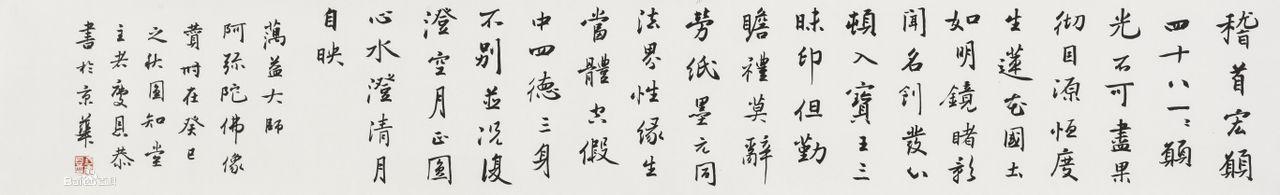 稽首宏願
四十八一〻願
光不可盡果
彻因源恒度
生蓮花國土
如明鏡睹影
聞名創發心
頓入寶王三
昧印但勤
瞻禮莫辭
勞紙墨元同
法界性缘生
當體空假
中四德三身
不別並况復
澄空月正圆
心水澄清月
自映
蕅益大師
阿弥陀佛像
贊時在癸巳
之秋圆知堂
主老慶具恭
書於京華
Baidu百科